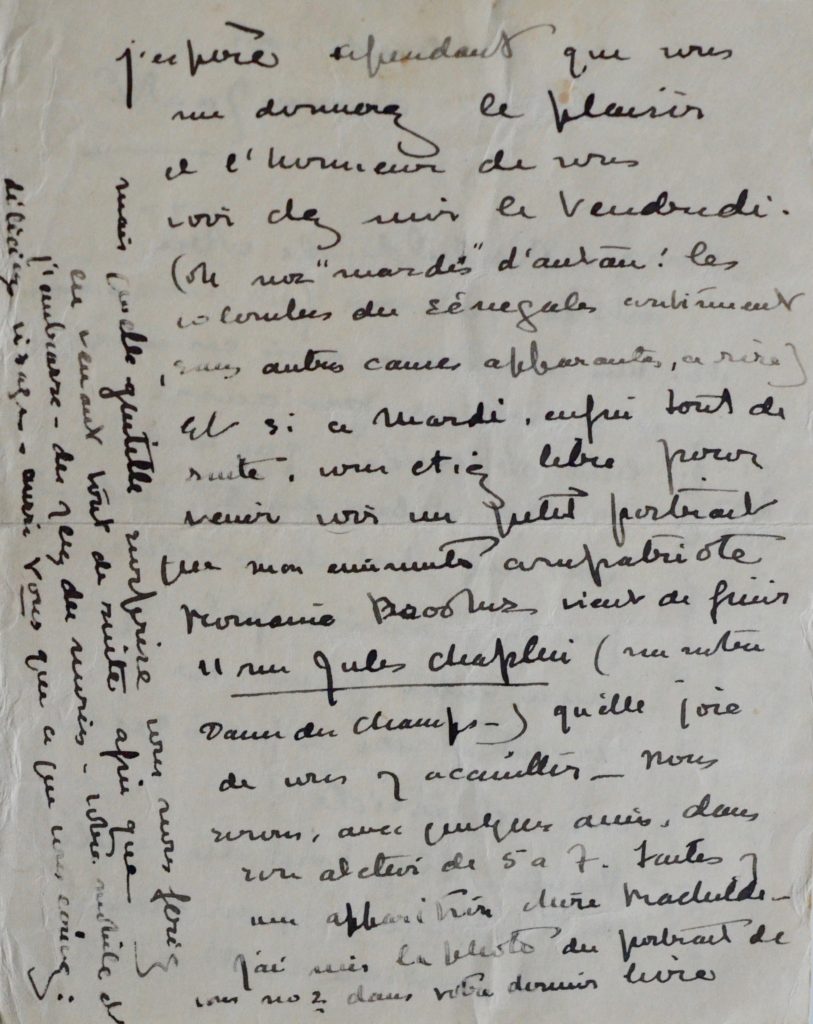 j'espère cependant que vous
me donnerez le plaisir
et l'honneur de vous
voir chez moi le Vendredi.
(oh nos "mardis" d'autan! les
colombes du Sénégales continuent
sans autres causes apparantes, a rire)
Et si ce Mardi, enfin tout de
suite, vous etiez libre pour
venir voir un petit portrait
que mon eminente compatriote
Romaine Brooks vient de finir
11 rue Jules Chaplin (rue notre
Dame des Champs—) quelle joie
de vous y acceuillir — Nous
serons, avec quelques amis, dans
son atelier de 5 a 7. Faites y
une apparition chère Mathilde —
j'ai mis la photo du portrait de
vous no 2 dans votre dernier livre
mais quelle gentille surprise vous nous feriez
en venant tout de suite afin que
j'embrasse - du rez du menton - votre mobile et
délicieux visage - aussi vous que ce que vous